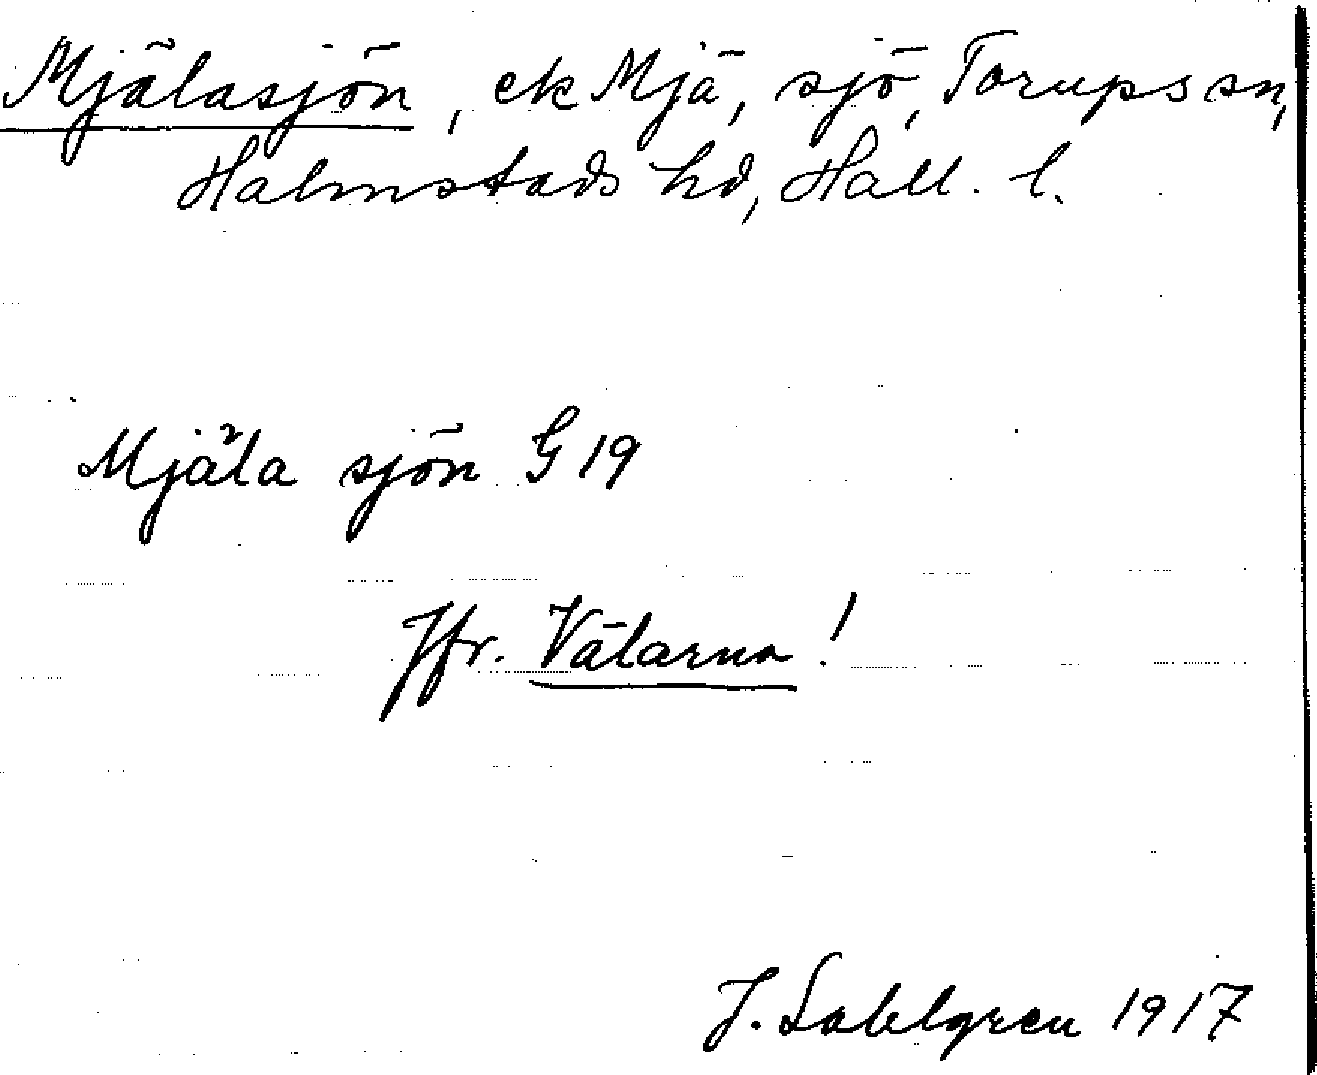 Mjälasjön, ek Mjä, sjö, Torups sn,
Halmstads hd, Hall. l.
Mjäla sjön G 19
Jfr. Välarna!
J. Sahlgren 1917